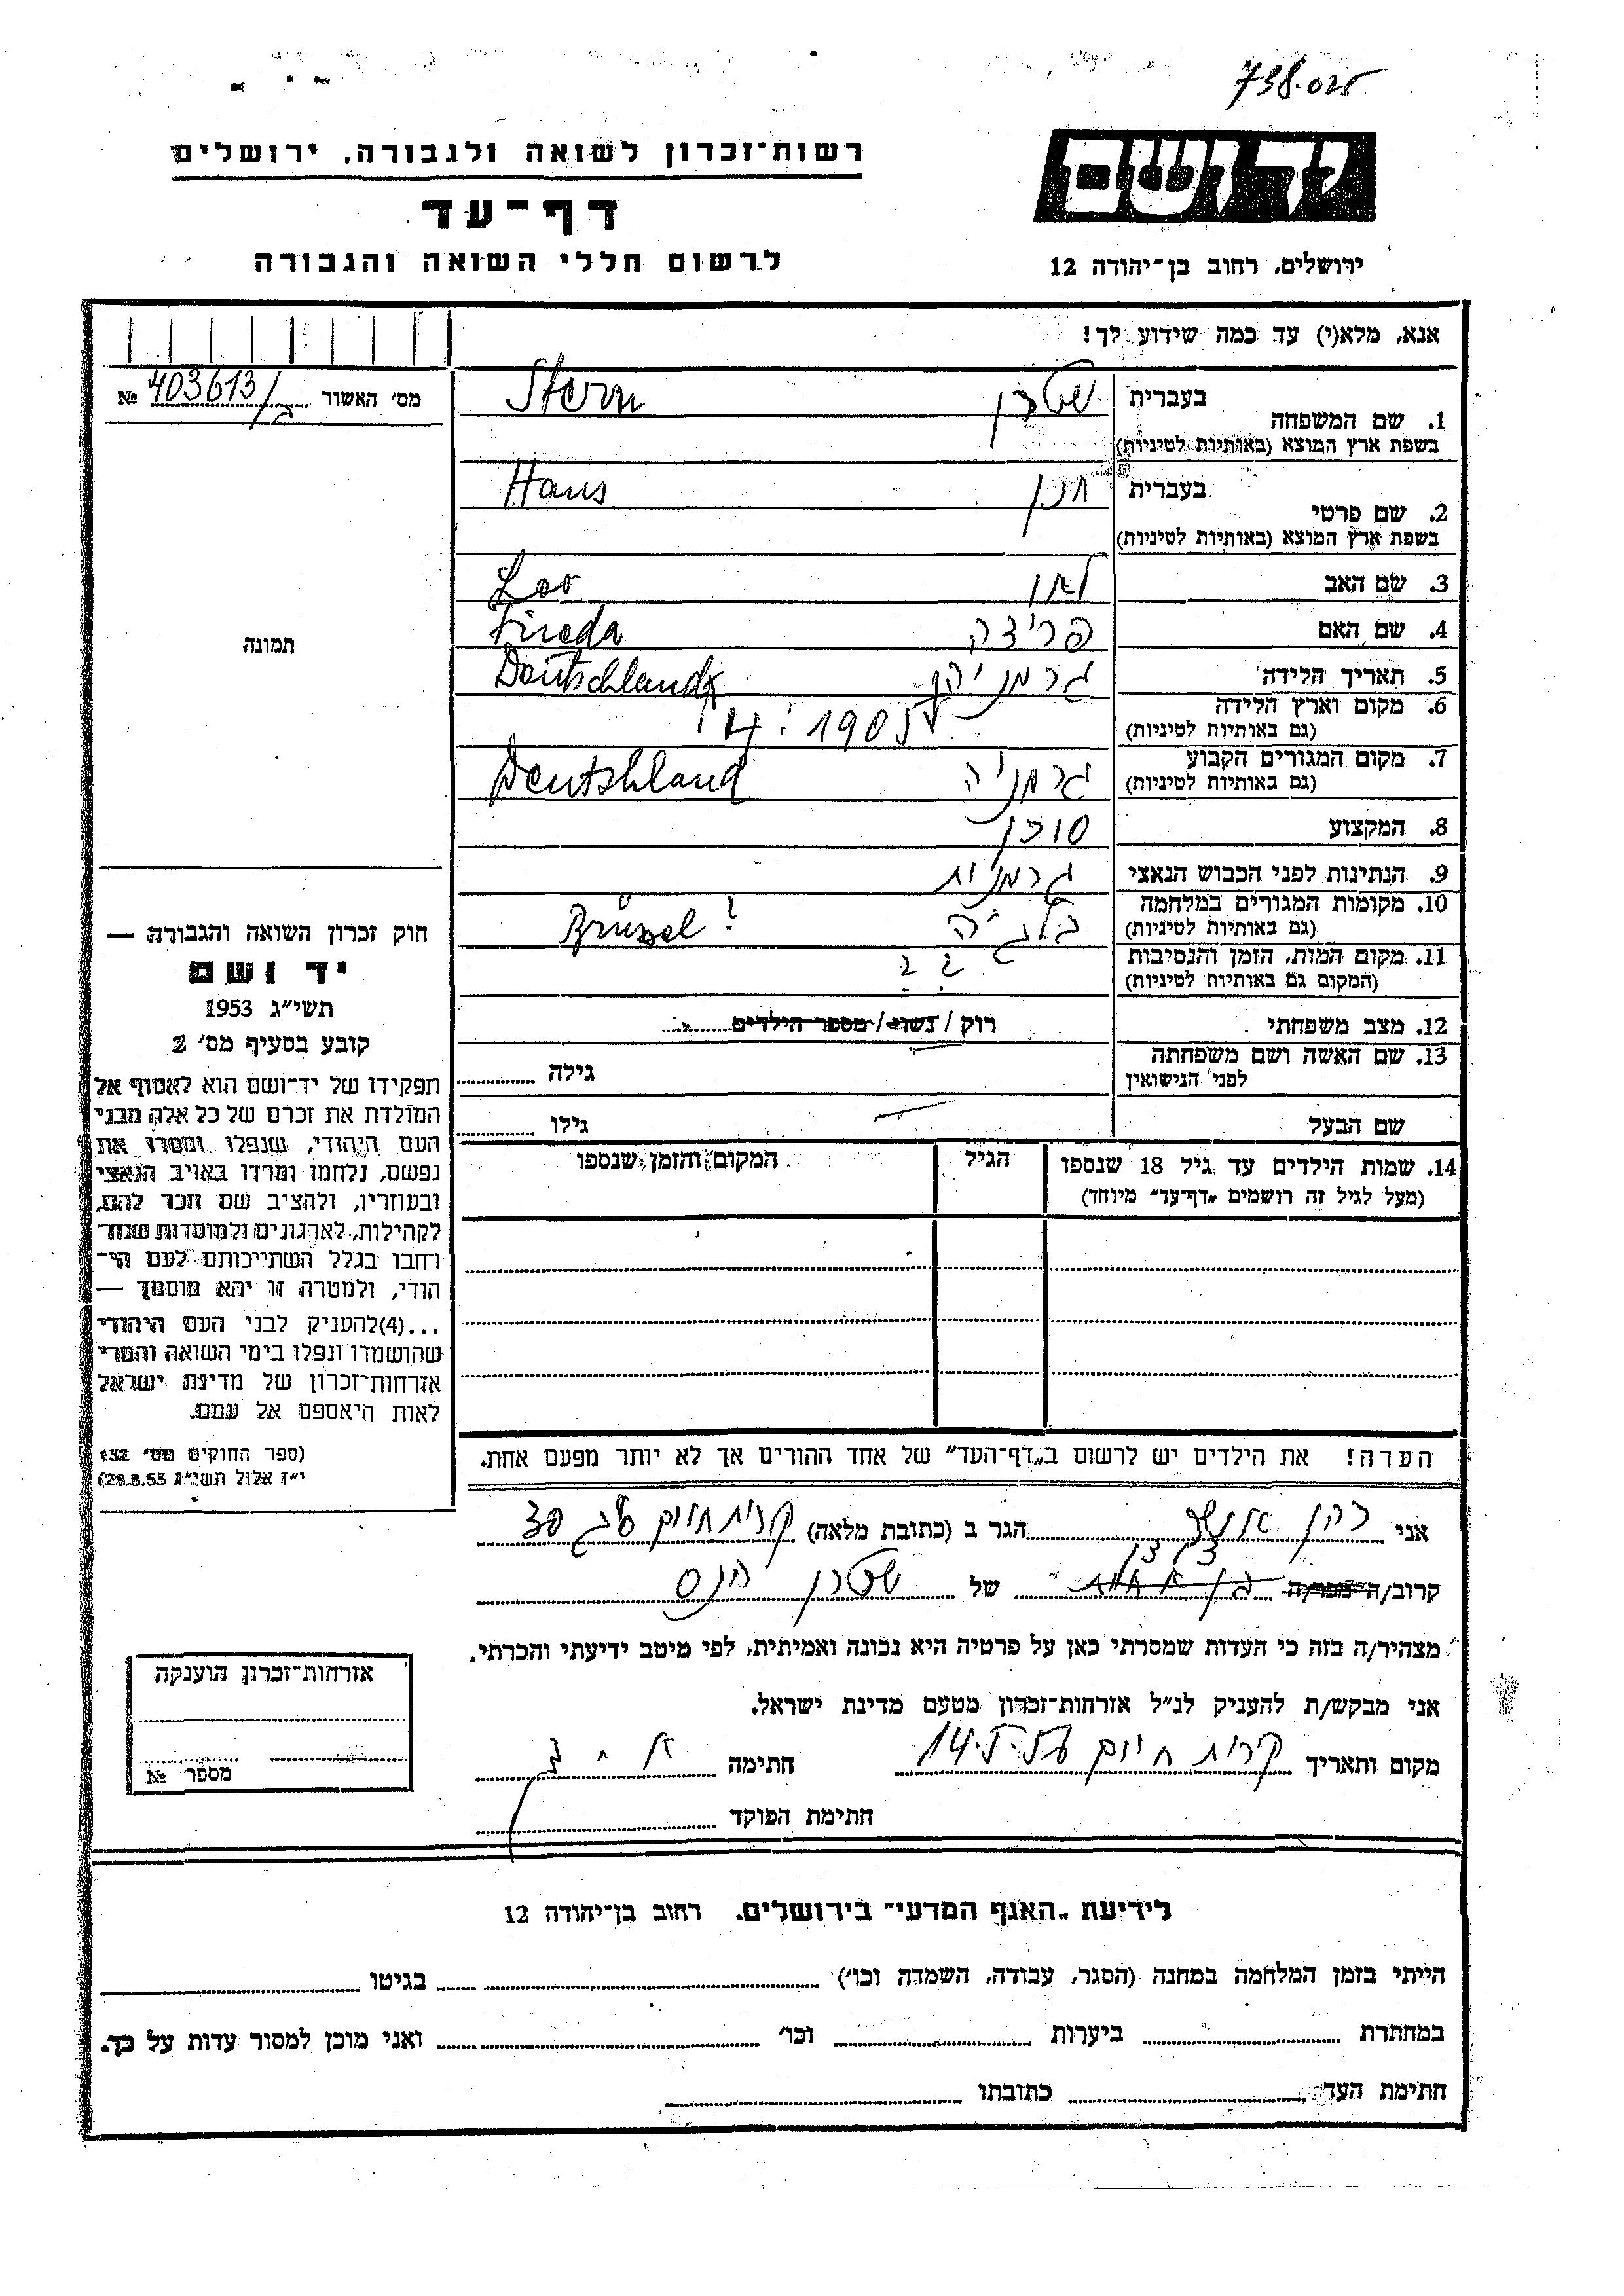 738.025
יד ושם
רשות־זכרון לשואה ולגבורה, ירושלים
דף־עד
לרשום חללי השואה והגבורה
ירושלים, רחוב בן־יהודה 12
אנא, מלא(י) עד כמה שידוע לך!
מס׳ האשור № 403613/
1. שם המשפחה בעברית שטרן Stern
בשפת ארץ המוצא (באותיות לטיניות)
2. שם פרטי בעברית חנן Hans
בשפת ארץ המוצא (באותיות לטיניות)
3. שם האב לאו Leo
4. שם האם פרידה Frieda
תמונה
5. תאריך הלידה גרמניה Deutschland
6. מקום וארץ הלידה 1905
(גם באותיות לטיניות)
7. מקום המגורים הקבוע גרמניה Deutshland
(גם באותיות לטיניות)
8. המקצוע סוכן
9. הנתינות לפני הכבוש הנאצי גרמנית
10. מקומות המגורים במלחמה בלגיה Brüssel?
(גם באותיות לטיניות)
11. מקום המות, הזמן והנסיבות ? ?
(המקום גם באותיות לטיניות)
12. מצב משפחתי רוק / נשוי / מספר הילדים
13. שם האשה ושם משפחתה גילה
לפני הנישואין
שם הבעל גילו
14. שמות הילדים עד גיל 18 שנספו הגיל המקום והזמן שנספו
(מעל לגיל זה רושמים „דף־עד״ מיוחד)
חוק זכרון השואה והגבורה —
יד ושם
תשי״ג 1953
קובע בסעיף מס׳ 2
תפקידו של יד־ושם הוא לאסוף אל
המולדת את זכרם של כל אלה מבני
העם היהודי, שנפלו ומסרו את
נפשם, נלחמו ומרדו באויב הנאצי
ובעוזריו, ולהציב שם וזכר להם,
לקהילות, לארגונים ולמוסדות שנח־
רבו בגלל השתייכותם לעם הי־
הודי, ולמטרה זו יהא מוסמך —
...(4)להעניק לבני העם היהודי
שהושמדו ונפלו בימי השואה והמרי
אזרחות־זכרון של מדינת ישראל
לאות היאספם אל עמם.
(ספר החוקים מס׳ 132
י״ז אלול תשי״ג 28.8.53)
הערה! את הילדים יש לרשום ב„דף־העד״ של אחד ההורים אך לא יותר מפעם אחת.
אני כהן הגר ב (כתובת מלאה) קרית חיים 30
קרוב/ה מכר/ה של שטרן הנס
מצהיר/ה בזה כי העדות שמסרתי כאן על פרטיה היא נכונה ואמיתית, לפי מיטב ידיעתי והכרתי.
אני מבקש/ת להעניק לנ״ל אזרחות־זכרון מטעם מדינת ישראל.
מקום ותאריך קרית חיים 14.5.55 חתימה
חתימת הפוקד
אזרחות־זכרון הוענקה
מספר №
לידיעת „האגף המדעי״ בירושלים. רחוב בן־יהודה 12
הייתי בזמן המלחמה במחנה (הסגר, עבודה, השמדה וכו׳) בגיטו
במחתרת ביערות וכו׳ ואני מוכן למסור עדות על כך.
חתימת העד כתובתו